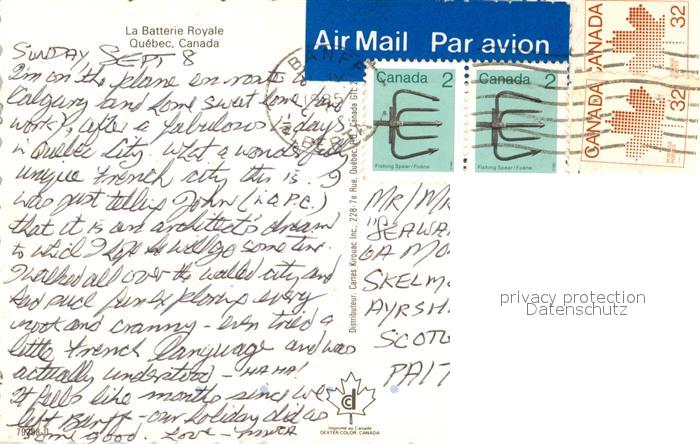 La Batterie Royale
Québec, Canada
SUNDAY SEPT 8
I'm on the plane en route to
Calgary and home sweet home (and
work), after a fabulous days
in Quebec City. What a wonderfully
unique French city this is. I
was just telling John (in a P.C.)
that it is an architect's dream
to which I hope he will go sometime.
I walked all over the walled city and
had such fun exploring every
nook and cranny - even tried a
little French language and was
actually understood - HA HA!
It feels like months since we
left Banff - our holiday did us
some good. Love -
79298-D
Distributeur, Cartes Kirouac Inc., 228-7e Rue, Québec, Canada
Imprimé au Canada
DEXTER COLOR, CANADA
Air Mail Par avion
BANFF
Canada 2
Fishing Spear / Foëne
Canada 2
Fishing Spear / Foëne
CANADA 32
CANADA 32
MR/MR
"SEAWA
6A MO
SKELM
AYRSH
SCOTL
privacy protection
Datenschutz